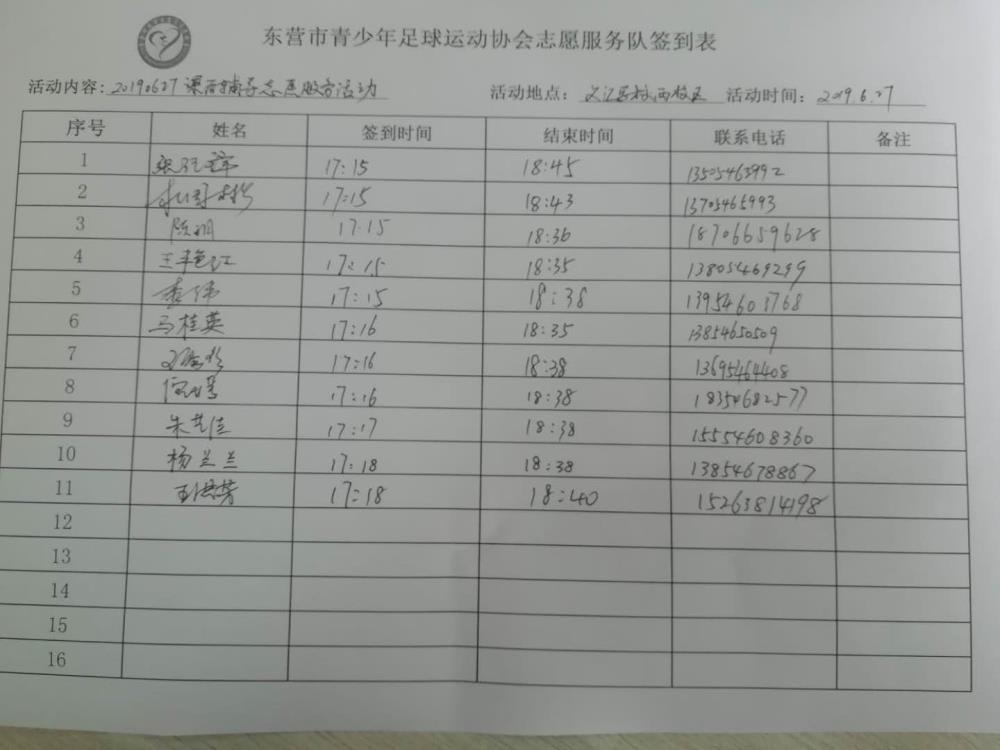 东营市青少年足球运动协会志愿服务队签到表
活动内容: 20190627 课后辅导志愿服务活动 活动地点: 校西校区 活动时间: 2019.6.27
序号 姓名 签到时间 结束时间 联系电话 备注
1 17:15 18:45 13505463992
2 17:15 18:43 13705465993
3 陈娟 17:15 18:36 18706659628
4 王艳江 17:15 18:35 13805469299
5 李伟 17:15 18:38 13954603768
6 马桂英 17:16 18:35 13854650509
7 17:16 18:38 13695464408
8 17:16 18:38 18350682577
9 朱艺佳 17:17 18:38 15554608360
10 杨兰兰 17:18 18:38 13854678867
11 17:18 18:40 15263814198
12
13
14
15
16